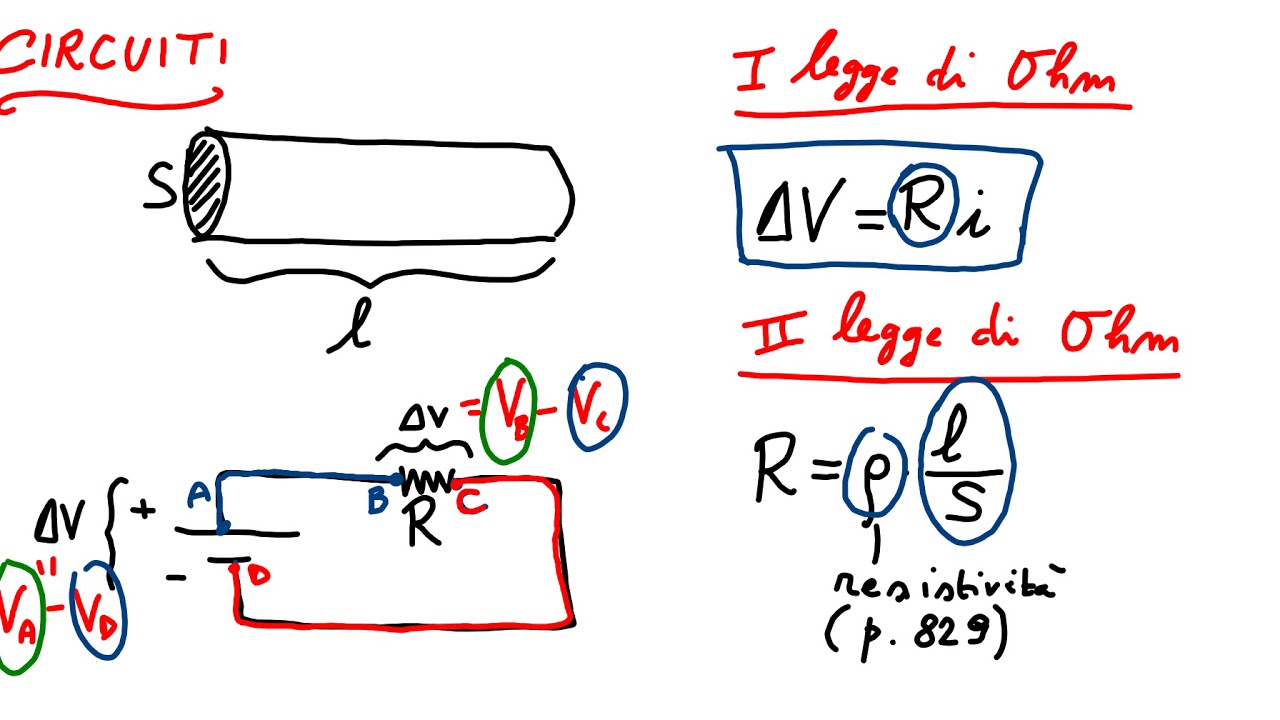 CIRCUITI
S
l
ΔV = V_B - V_C
A
B
R
C
ΔV
+
-
D
V_A - V_D
I legge di Ohm
ΔV = R i
II legge di Ohm
R = ρ l/S
resistività
(p. 829)